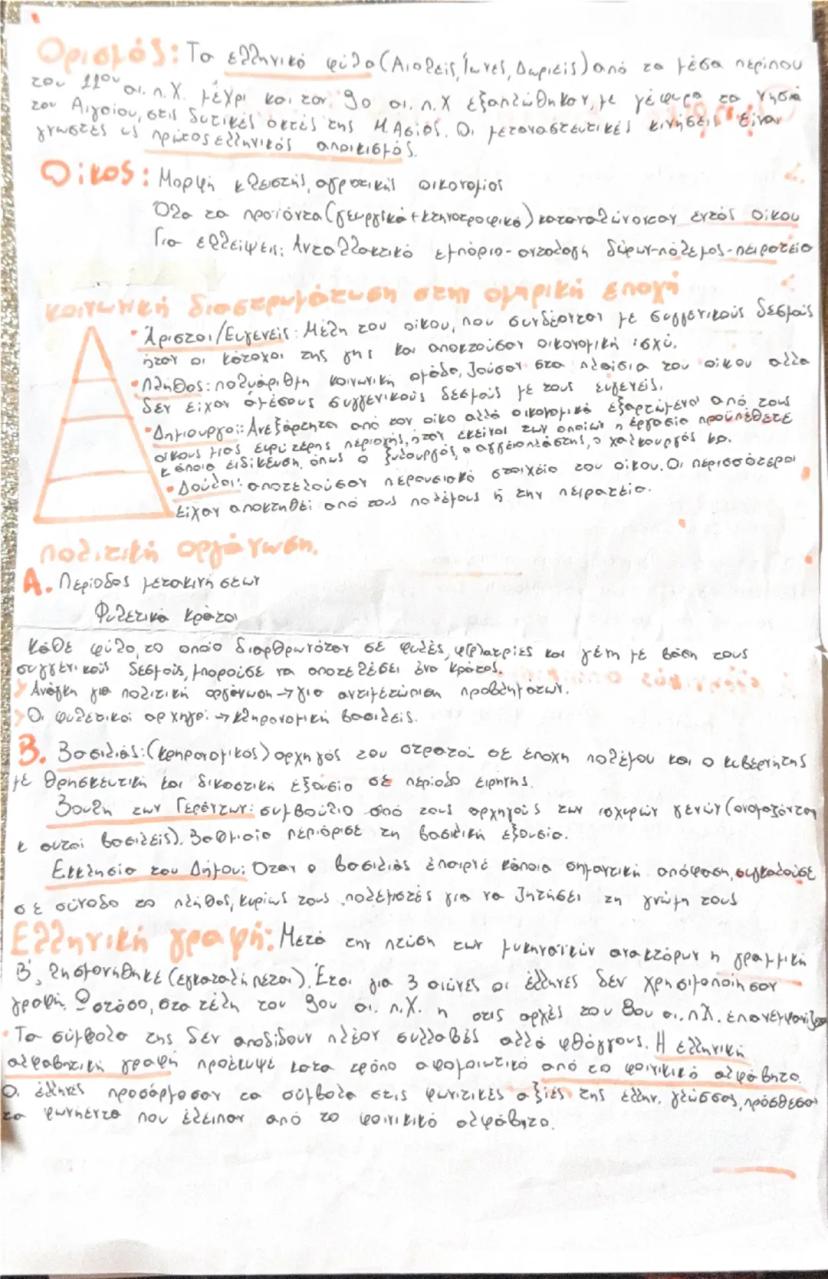 Ορισμός: Τα ελληνικά φύλα (Αιολείς, Ίωνες, Δωριείς) από τα μέσα περίπου
του 11ου αι. π.Χ. μέχρι και τον 9ο αι. π.Χ εξαπλώθηκαν, με γέφυρα τα νησιά
του Αιγαίου, στις δυτικές ακτές της Μ. Ασίας. Οι μεταναστευτικές κινήσεις είναι
γνωστές ως πρώτος ελληνικός αποικισμός.
Οίκος: Μορφή κλειστής, αγροτικής οικονομίας
Όλα τα προϊόντα (γεωργικά + κτηνοτροφικά) καταναλώνονταν εντός οίκου
Για ελλείψεις: Ανταλλακτικό εμπόριο - ανταλαγή δώρων - πόλεμος - πειρατεία
κοινωνική διαστρωμάτωση στην ομηρική εποχή
• Άριστοι/Ευγενείς: Μέλη του οίκου, που συνδέονταν με συγγενικούς δεσμούς
ήταν οι κάτοχοι της γης και αποκτούσαν οικονομική ισχύ.
• Πλήθος: πολυάριθμη κοινωνική ομάδα, ζούσαν στα πλαίσια του οίκου αλλα
δεν είχαν άμεσους συγγενικούς δεσμούς με τους ευγενείς.
• Δημιουργοί: Ανεξάρτητοι από τον οίκο αλλά οικονομικά εξαρτώμενοι από τους
οίκους μιας ευρύτερης περιοχής, ήταν εκείνοι των οποίων η εργασία προϋπέθετε
κάποια ειδίκευση, όπως ο ξυλουργός, ο αγγειοπλάστης, ο χαλκουργός κα.
• Δούλοι: αποτελούσαν περουσιακό στοιχείο του οίκου. Οι περισσότεροι
είχαν αποκτηθεί από τους πολέμους ή την πειρατεία.
πολιτική οργάνωση.
Α. Περίοδος μετακινήσεων
Φυλετικά κράτοι
Κάθε φύλο, το οποίο διαρθρωνόταν σε φυλές, φρατρίες και γένη με βάση τους
συγγενικούς δεσμούς, μπορούσε να αποτελέσει ένα κράτος.
> Ανάγκη για πολιτική οργάνωση → για αντιμετώπιση προβλημάτων.
> Οι φυλετικοί αρχηγοί → κληρονομική βασιλείς.
Β. Βασιλιάς: (κρηρονομικος) αρχηγός του στρατού σε έποχη πολέμου και ο κυβερνήτης
με θρησκευτική και δικαστική εξουσία σε περίοδο ειρήνης.
Βουλή των Γερόντων: συμβούλιο από τους αρχηγούς των ισχυρών γενών (ονομαζόνται
κ αυτοί βασιλείς). Βαθμιαία περιόρισε τη βασιλική εξουσία.
Εκκλησία του Δήμου: Όταν ο βασιλιάς έπαιρνε κάποια σημαντική απόφαση, συγκαλούσε
σε σύνοδο το πλήθος, κυρίως τους πολεμιστές για να ζητήσει τη γνώμη τους
Ελληνική γραφή: Μετά την πτώση των μυκηναϊκών ανακτόρων η γραμμική
Β', λησμονήθηκε (εγκαταλήπεται). Έτσι για 3 αιώνες οι έλληνες δεν χρησιμοποίησαν
γραφή. Ωστόσο, στα τέλη του 9ου αι. π.Χ. η στις αρχές του 8ου αι. π.Χ. επανεμφανίζεται
• Τα σύμβολα της δεν αποδίδουν πλέον συλλαβές αλλά φθόγγους. Η ελληνική
αλφαβητική γραφή προέκυψε κατα τρόπο αφομοιωτικό από το φοινικικό αλφάβητο.
Οι έλληνες προσάρμοσαν τα σύμβολα στις φωνητικές αξίες της έλλην. γλώσσας, πρόσθεσαν
τα φωνήεντα που έλειπαν από το φοινικικό αλφάβητο.